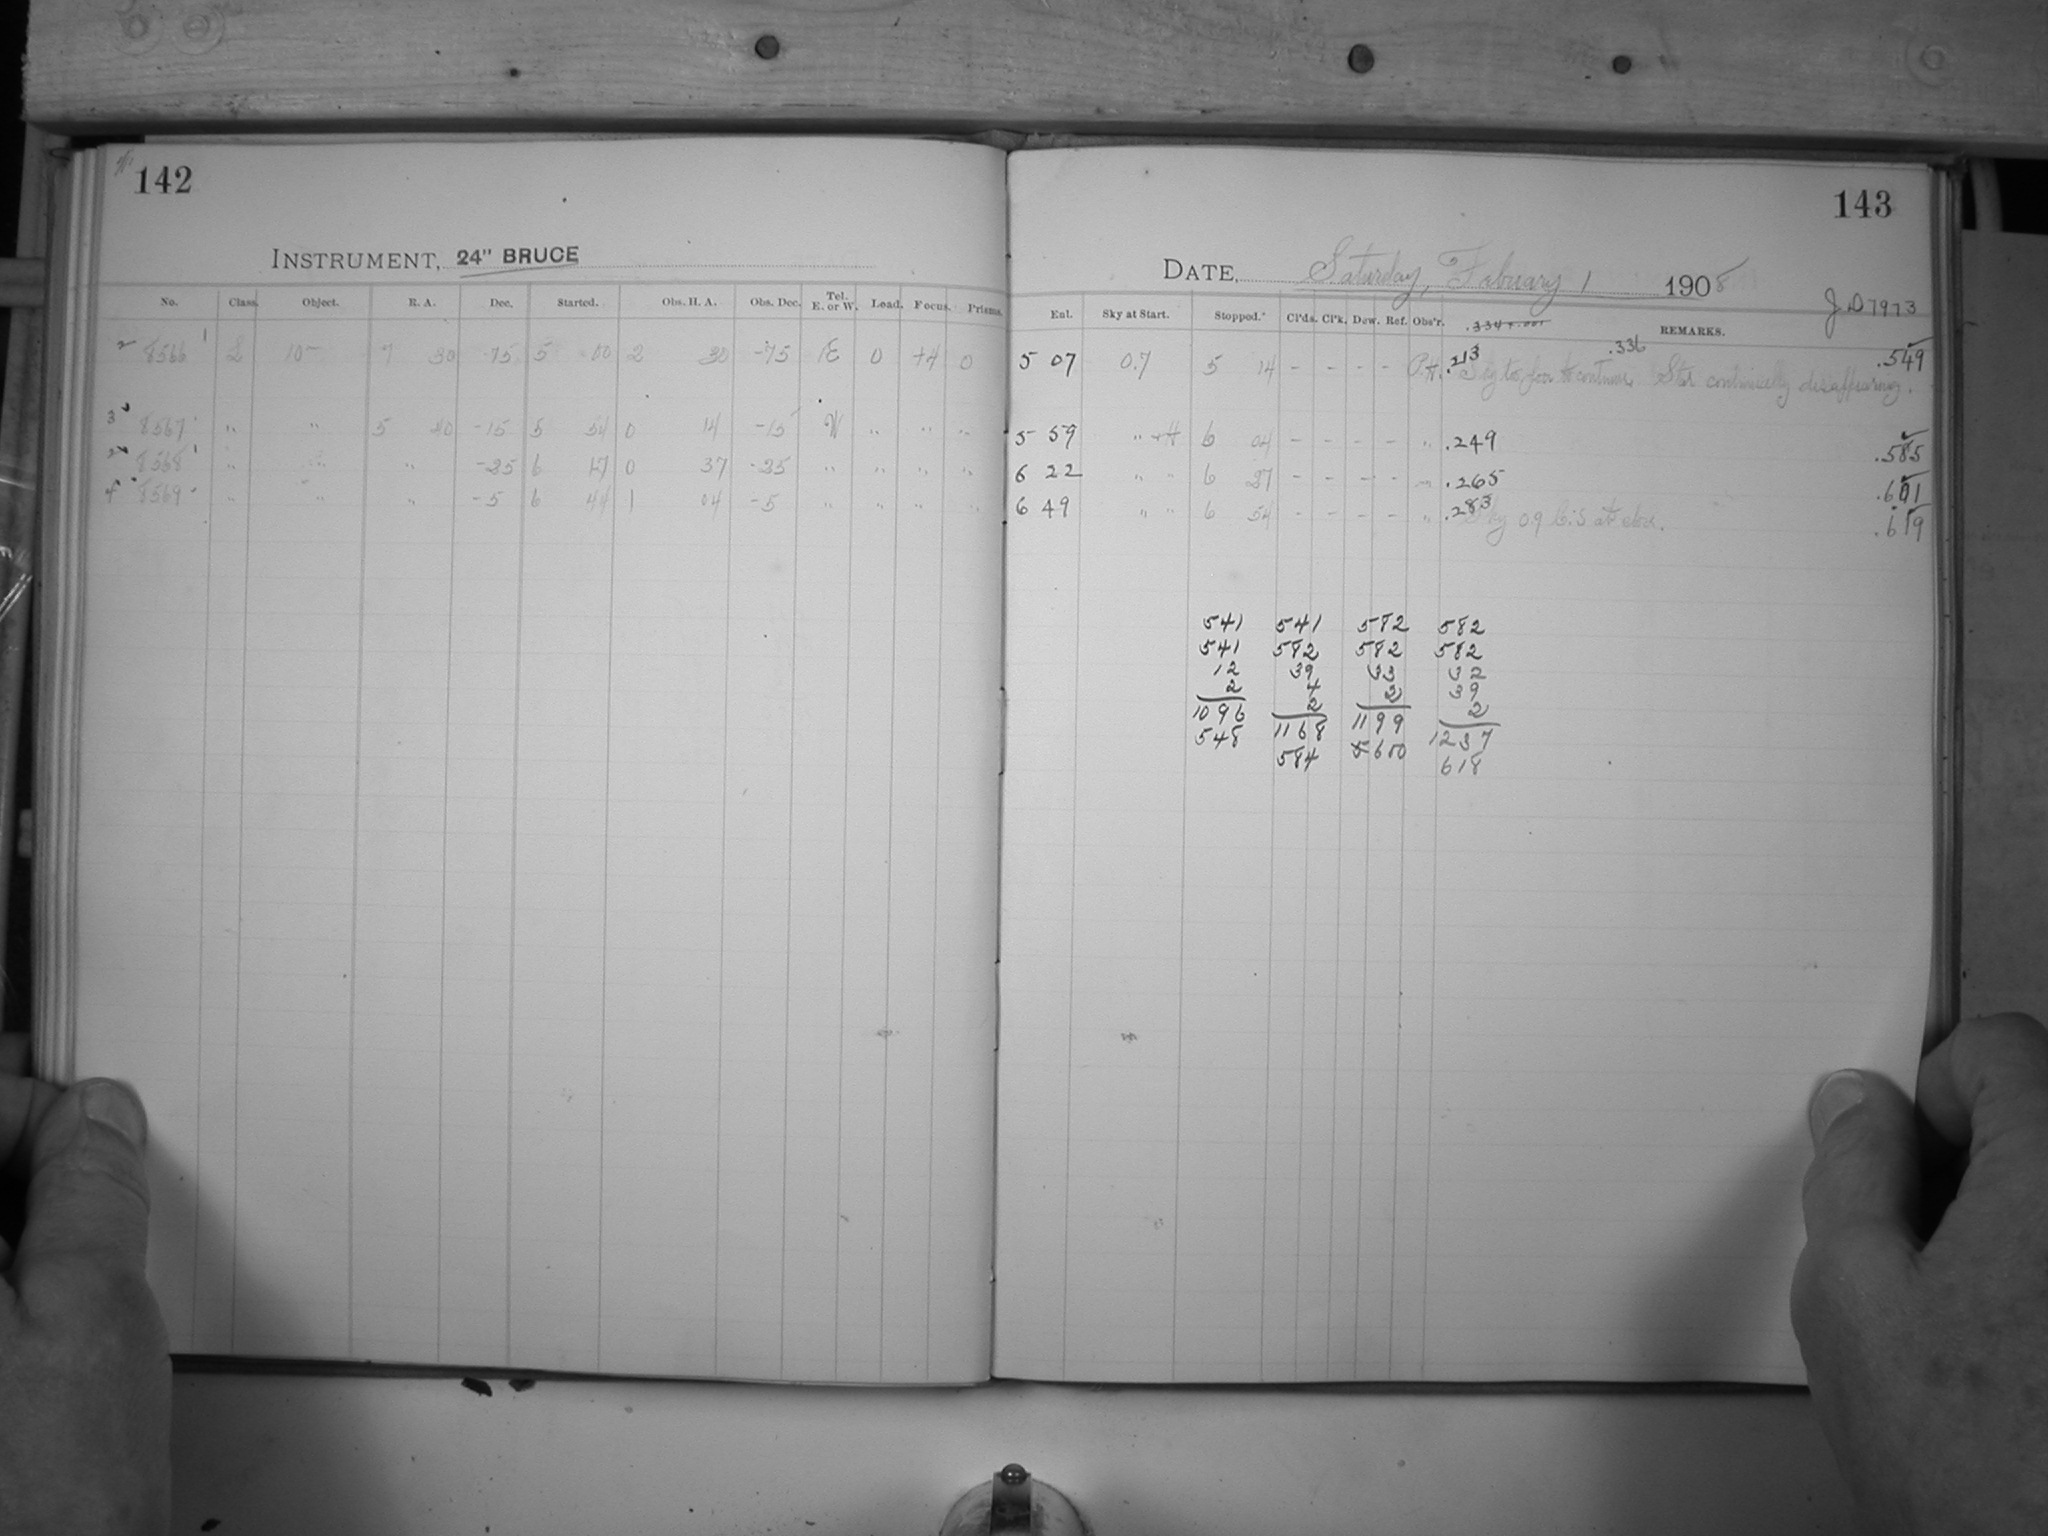 142
INSTRUMENT, 24" BRUCE
No. Class. Object. R. A. Dec. Started. Obs. H. A. Obs. Dec. Tel. E. or W. Load. Focus. Prisms.
2 8566 1 L 10 7 30 -75 5 00 2 30 -75 E 0 +4 0
3 8567 " " 5 40 -15 5 54 0 14 -15 W " " "
2 8568 1 " " " -25 6 17 0 37 -25 " " " "
4 8569 " " " -5 6 44 1 04 -5 " " " "
143
DATE, Saturday, Febuary 1 1908
J.D 7973
Ext. Sky at Start. Stopped. Cl'ds. Cl'k. Dew. Ref. Obs'r. REMARKS.
.336
5 07 0.7 5 14 - - - - P.H. .213 Sky too poor to continue. Star continually disappearing. .549
5 59 " 6 04 - - - - " .249 .585
6 22 " " 6 27 - - - - " .265 .601
6 49 " " 6 54 - - - - " .283 Sky 0.9 .619
541 541 582 582
541 582 582 582
12 39 33 32
2 4 2 39
1096 2 1199 2
548 1168 600 1237
584 618